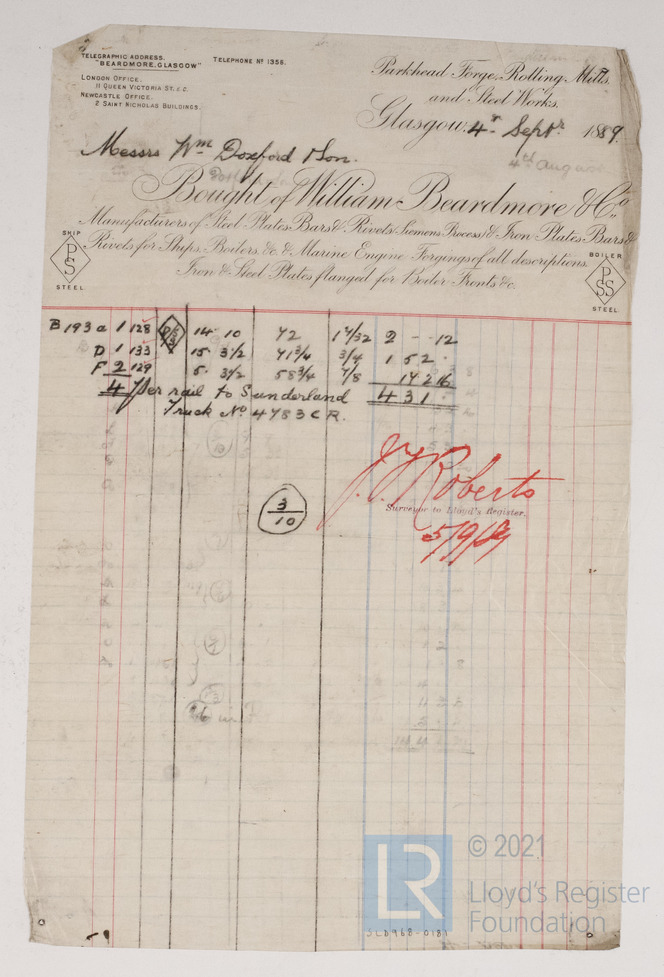 TELEGRAPHIC ADDRESS.
"BEARDMORE, GLASGOW"
TELEPHONE Nº 1356.
LONDON OFFICE.
11 QUEEN VICTORIA ST. E.C.
NEWCASTLE OFFICE.
2 SAINT NICHOLAS BUILDINGS.
Parkhead Forge, Rolling Mills,
and Steel Works.
Glasgow, 4r Septr 1889.
Messrs Wm Doxford & Son.
Bought of William Beardmore & Co.,
Manufacturers of Steel Plates Bars & Rivets (Siemens Process) & Iron Plates Bars &
Rivets for Ships, Boilers, &c. & Marine Engine Forgings of all descriptions.
Iron & Steel Plates flanged for Boiler Fronts &c.
SHIP
PS
STEEL
BOILER
PSS
STEEL
B 193 a 1 128 14 10 72 1 7/32 2 - - 12
D 1 133 15 3½ 71¾ ¾ 1 5 2 -
F 2 129 5 3½ 58¾ 7/8 14 2 16
4 Per rail to Sunderland 4 3 1 -
Truck No 4783 C R.
J. J. Roberts
Surveyor to Lloyd's Register.
5/9/89
3/10
LR
© 2021
Lloyd's Register
Foundation
SLD968-0181